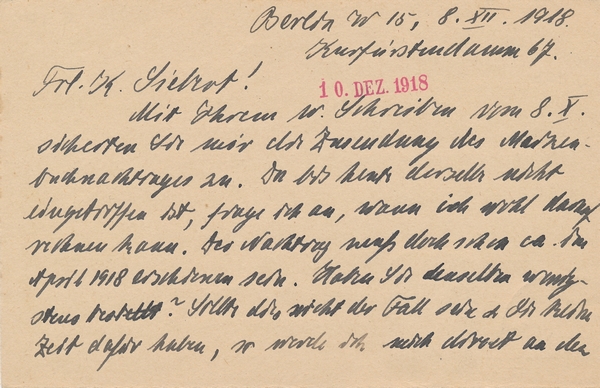 Berlin W 15, 8. XII. 1918.
Kurfürstendamm 67.
Frl. K. Siebrot!
10. DEZ. 1918
Mit Ihrem w. Schreiben vom 8. X.
sicherten Sie mir die Zusendung des Marken-
buchnachtrages zu. Da bis heute derselbe nicht
eingetroffen ist, frage ich an, wann ich wohl darauf
rechnen kann. Der Nachtrag muß doch schon ca. im
April 1918 erschienen sein. Haben Sie denselben wenig-
stens bestellt? Sollte dies nicht der Fall sein o. Sie keine
Zeit dafür haben, so werde ich mich direct an den